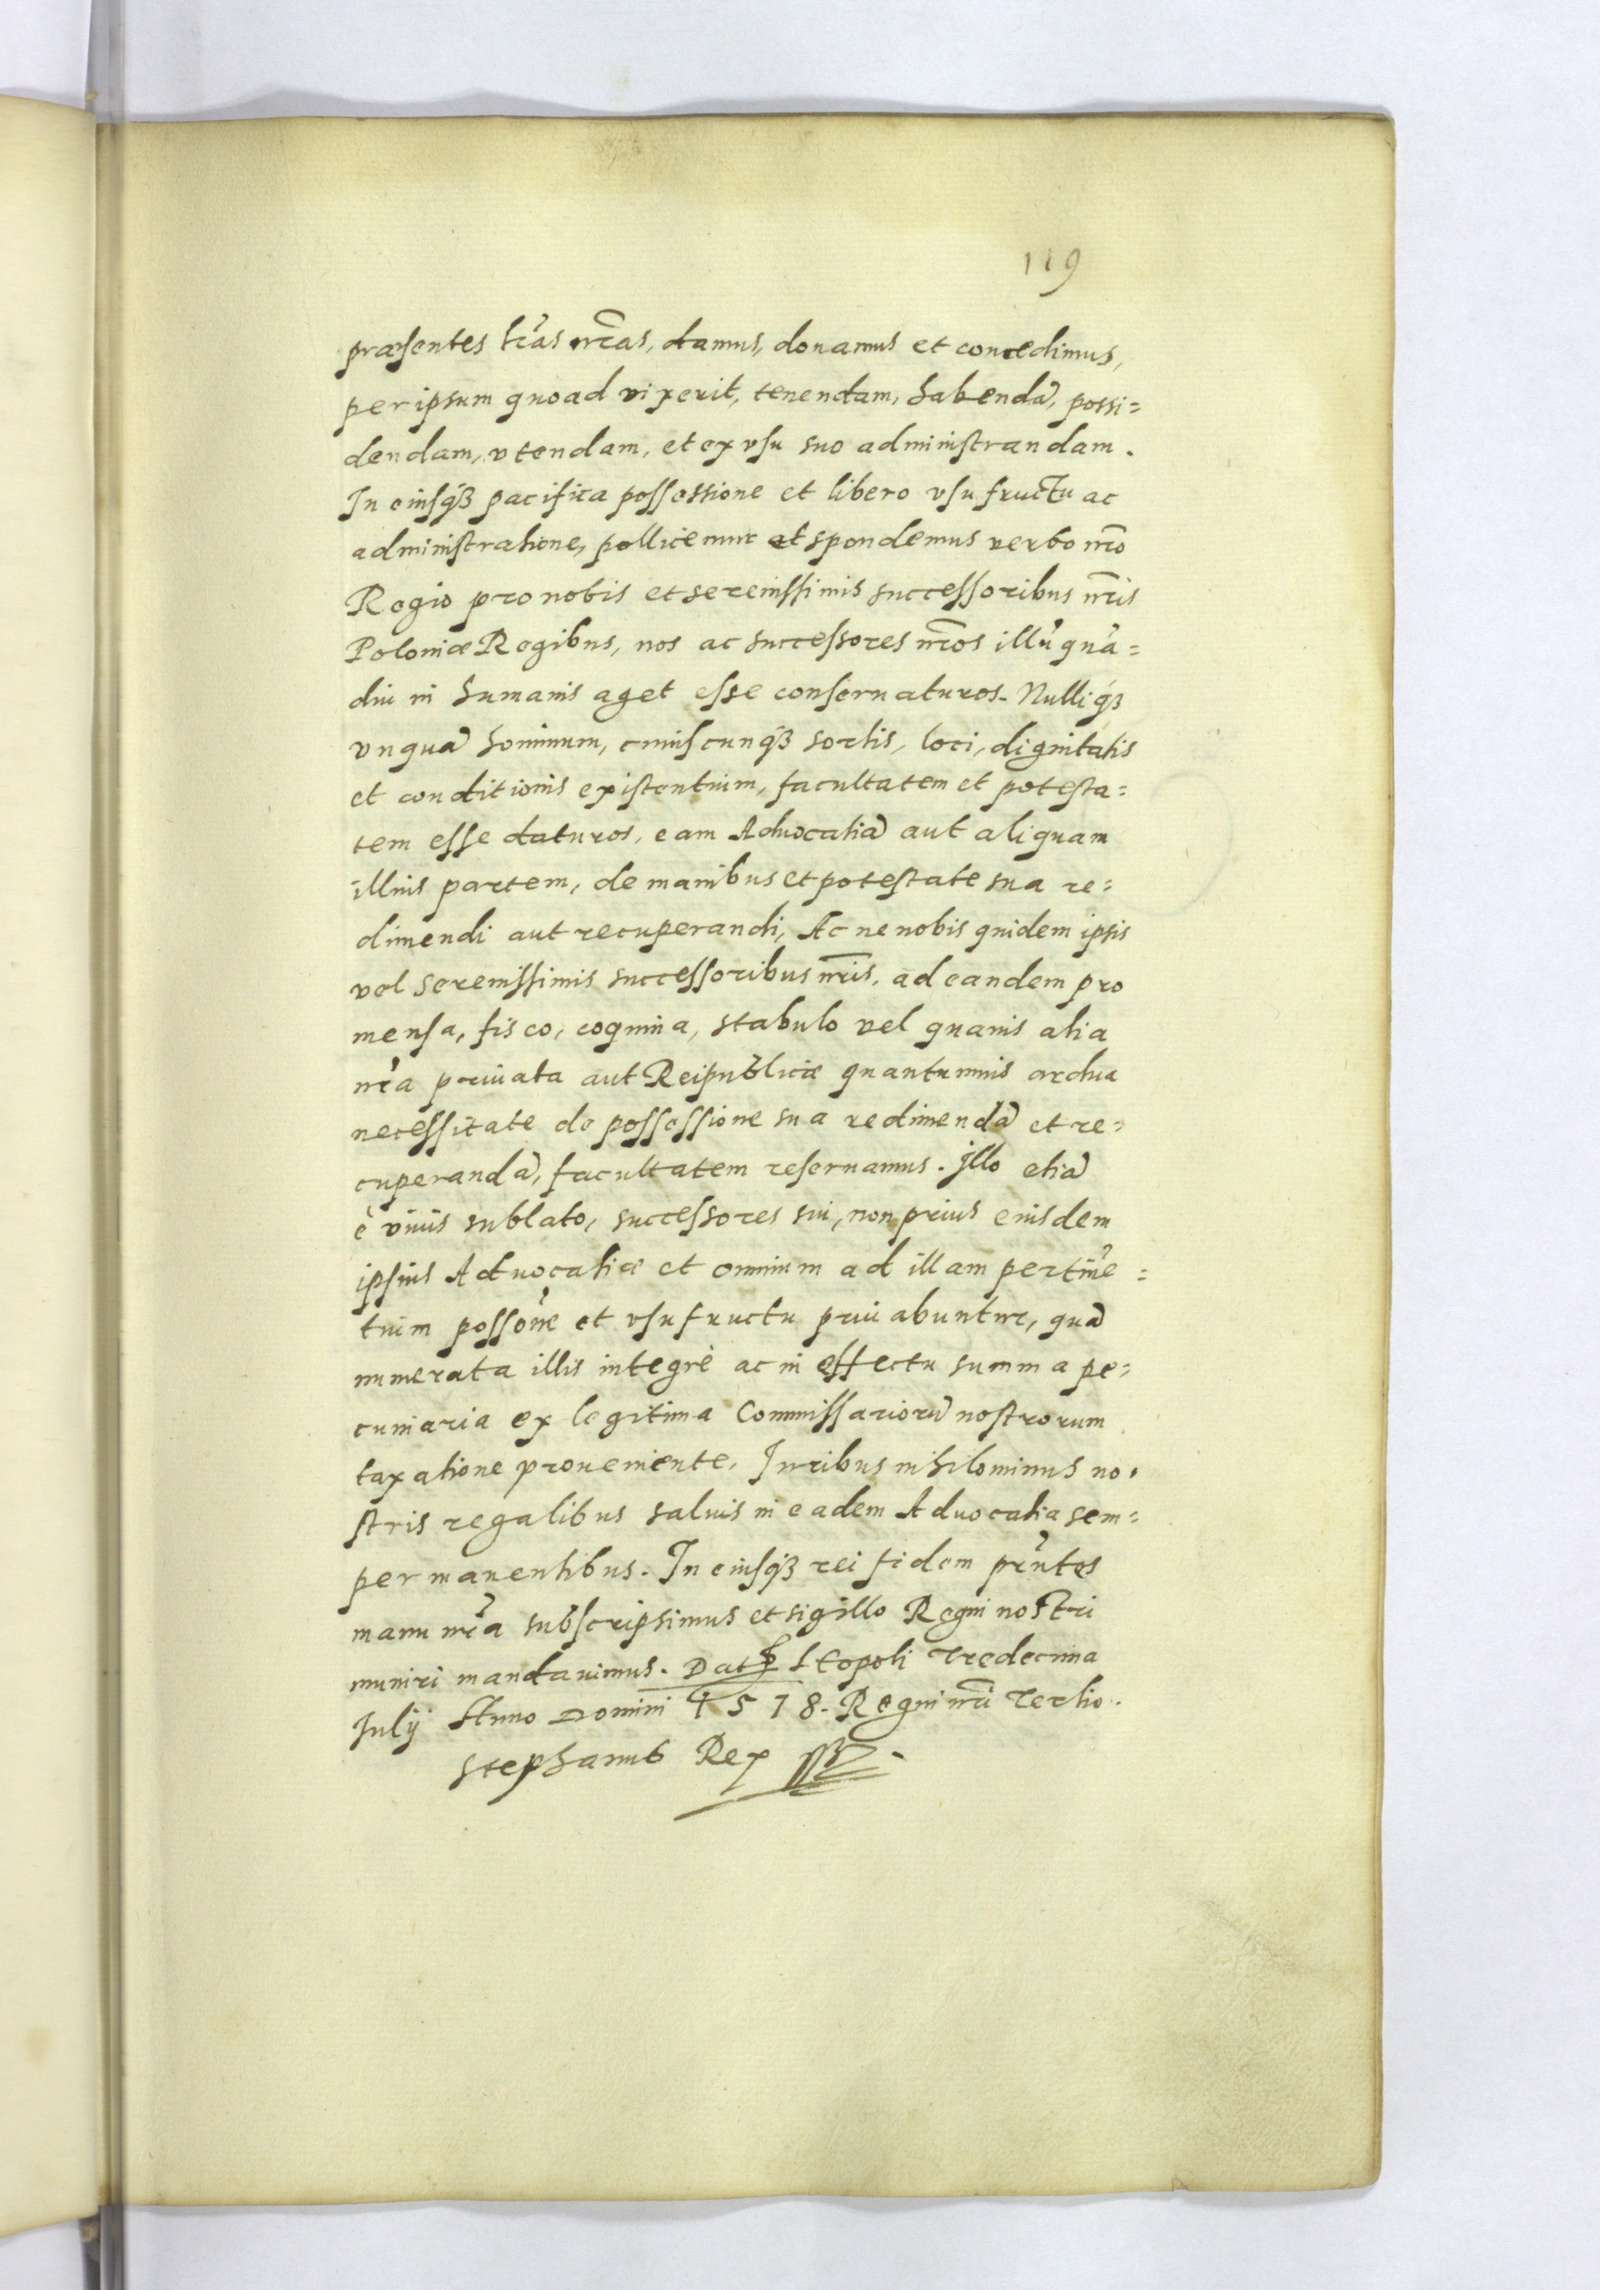 119
præsentes lr̃as nr̃as, damus, donamus et concedimus,
per ipsum quoad vixerit, tenendam, habendã, possi=
dendam, vtendam, et ex vsu suo administrandam.
In eiusq́3 pacifica possessione et libero vsufructu ac
administratione, pollicemur et spondemus verbo nr̃o
Regio pro nobis et serenissimis successoribus nr̃is
Poloniæ Regibus, nos ac successores nr̃os illũ quã=
diu in humanis aget esse conseruaturos. Nulliq́3
vnquã hominum, cuiuscunq́3 sortis, loci, dignitatis
et conditionis existentium, facultatem et potesta=
tem esse daturos, eam Aduocatiã aut aliquam
illius partem, de manibus et potestate sua re=
dimendi aut recuperandi, Ac ne nobis quidem ipsis
vel serenissimis successoribus nr̃is, ad eandem pro
mensa, fisco, coquina, stabulo vel quauis alia
nr̃a priuata aut Reipublicæ quantumuis ardua
necessitate de possessione sua redimendã et re=
cuperandã, facultatem reseruamus. Illo etiã
è viuis sublato, successores sui, non prius eiusdem
ipsius Aduocatiæ et omnium ad illam pertinẽ=
tium possõne et vsufructu priuabuntur, quã
numerata illis integrè ac in effectu summa pe=
cuniaria ex legitima Commissariorũ nostrorum
taxatione proueniente. Iuribus nihilominus no=
stris regalibus saluis in eadem Aduocatia sem=
per manentibus. In eiusq́3 rei fidem prñtes
manu nr̃a subscripsimus et sigillo Regni nostri
muniri mandauimus. Dat̃ Leopoli Tredecima
Iulij Anno Domini 1578. Regni nr̃i Tertio.
Stephanus Rex sst.